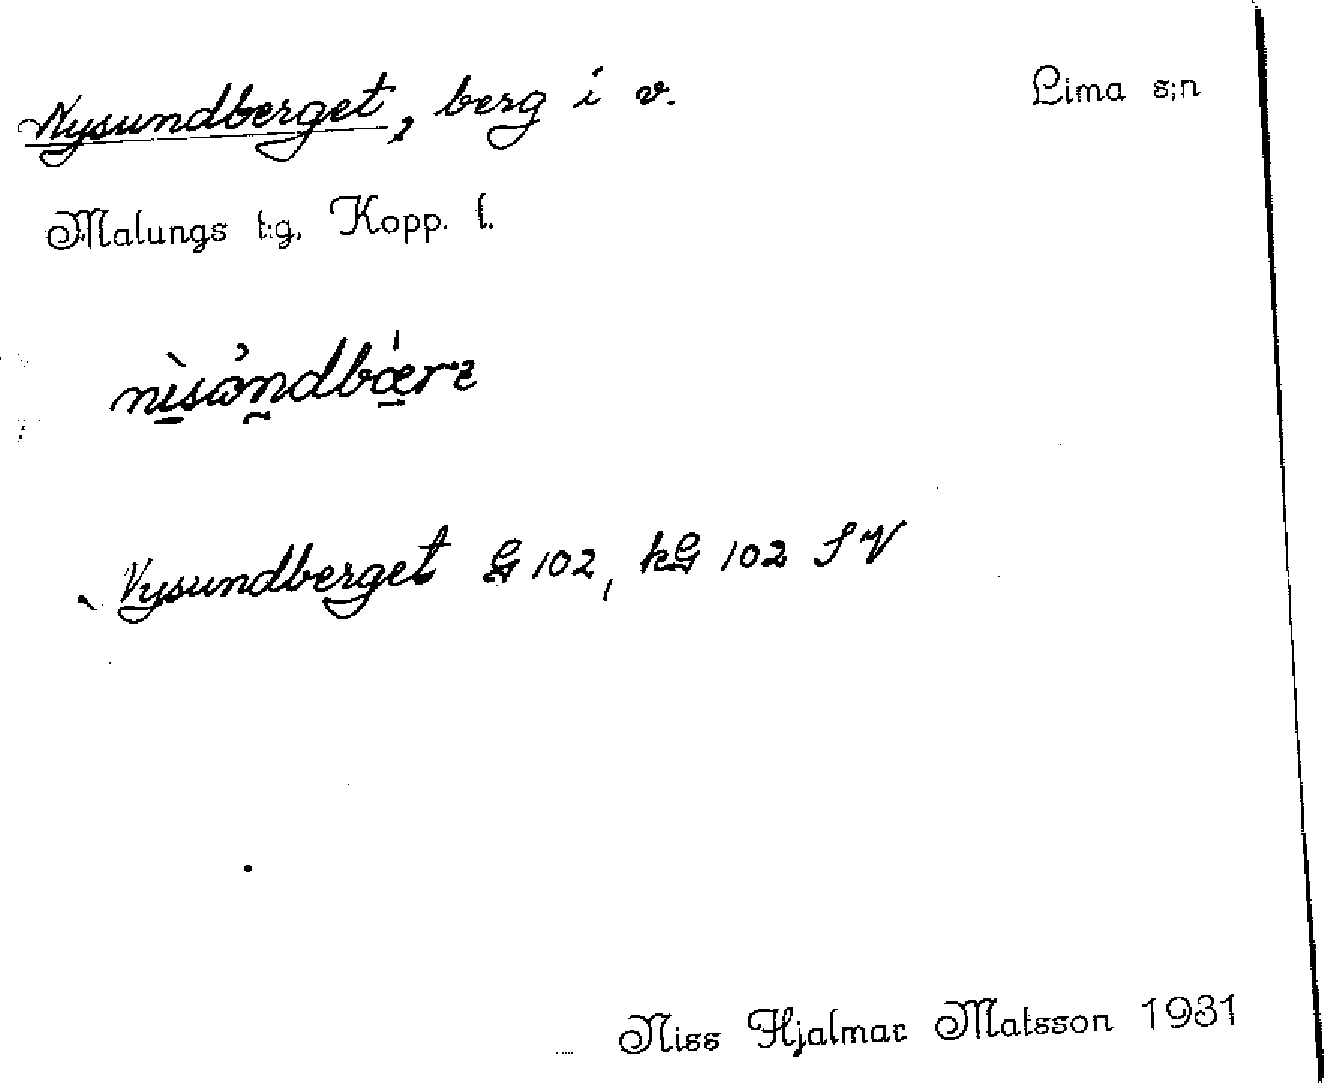 Nysundberget, berg i v. Lima s:n
Malungs t:g, Kopp. l.
Nysundberget G 102, kG 102 SV
Niss Hjalmar Matsson 1931